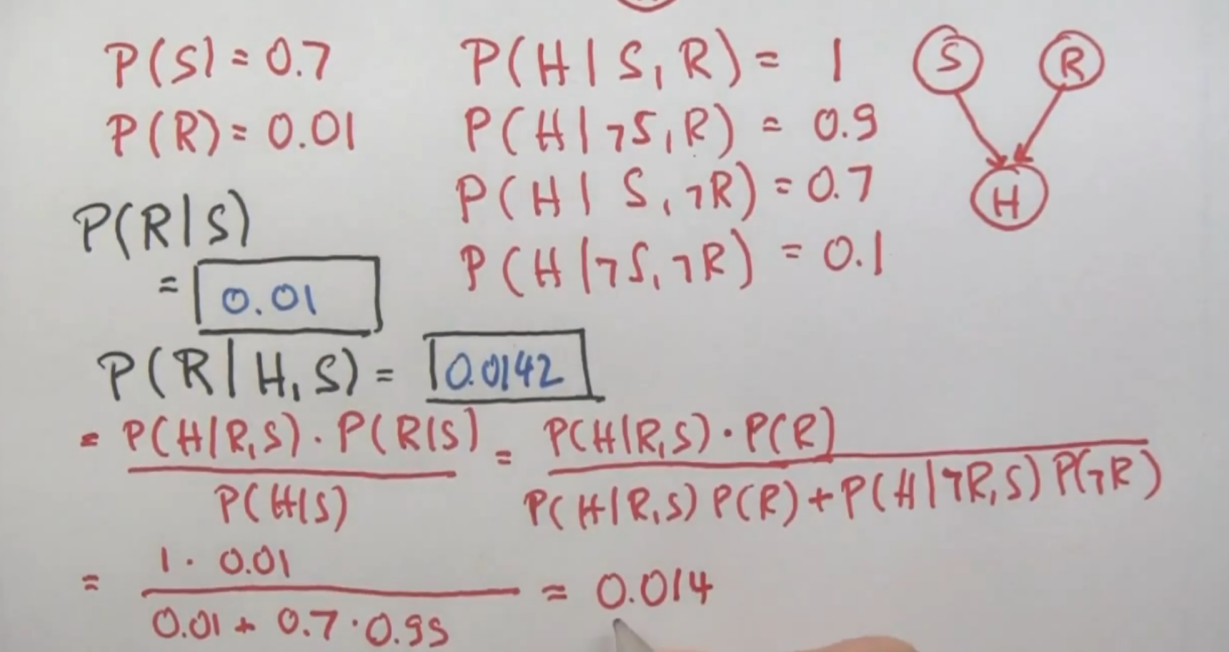 P(S) = 0.7
P(R) = 0.01
P(H | S, R) = 1
P(H | ¬S, R) = 0.9
P(H | S, ¬R) = 0.7
P(H | ¬S, ¬R) = 0.1
S R
H
P(R|S)
= 0.01
P(R | H, S) = 0.0142
= P(H|R,S) · P(R|S) = P(H|R,S) · P(R)
P(H|S) P(H|R,S) P(R) + P(H|¬R,S) P(¬R)
1 · 0.01
= = 0.014
0.01 + 0.7 · 0.99